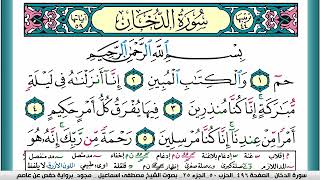 سُورَةُ الدُّخَانِ
بِسْمِ اللَّهِ الرَّحْمَٰنِ الرَّحِيمِ
حمٓ ١ وَالْكِتَابِ الْمُبِينِ ٢ إِنَّا أَنزَلْنَاهُ فِي لَيْلَةٍ
مُّبَارَكَةٍ إِنَّا كُنَّا مُنذِرِينَ ٣ فِيهَا يُفْرَقُ كُلُّ أَمْرٍ حَكِيمٍ ٤
أَمْرًا مِّنْ عِندِنَا إِنَّا كُنَّا مُرْسِلِينَ ٥ رَحْمَةً مِّن رَّبِّكَ إِنَّهُ هُوَ
سورة الدخان. الصفحة ٤٩٦ الحزب ٥٠ الجزء ٢٥ بصوت الشيخ مصطفى اسماعيل. مجود. برواية حفص عن عاصم